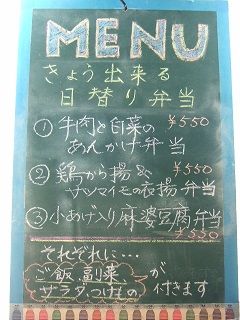 MENU
きょう出来る
日替り弁当
① 牛肉と白菜の ¥550
あんかけ弁当
② 鶏から揚& ¥550
サツマイモの衣揚弁当
③ 小あげ入り麻婆豆腐弁当
¥550
それぞれに…
ご飯、副菜
サラダ、つけもの が付きます